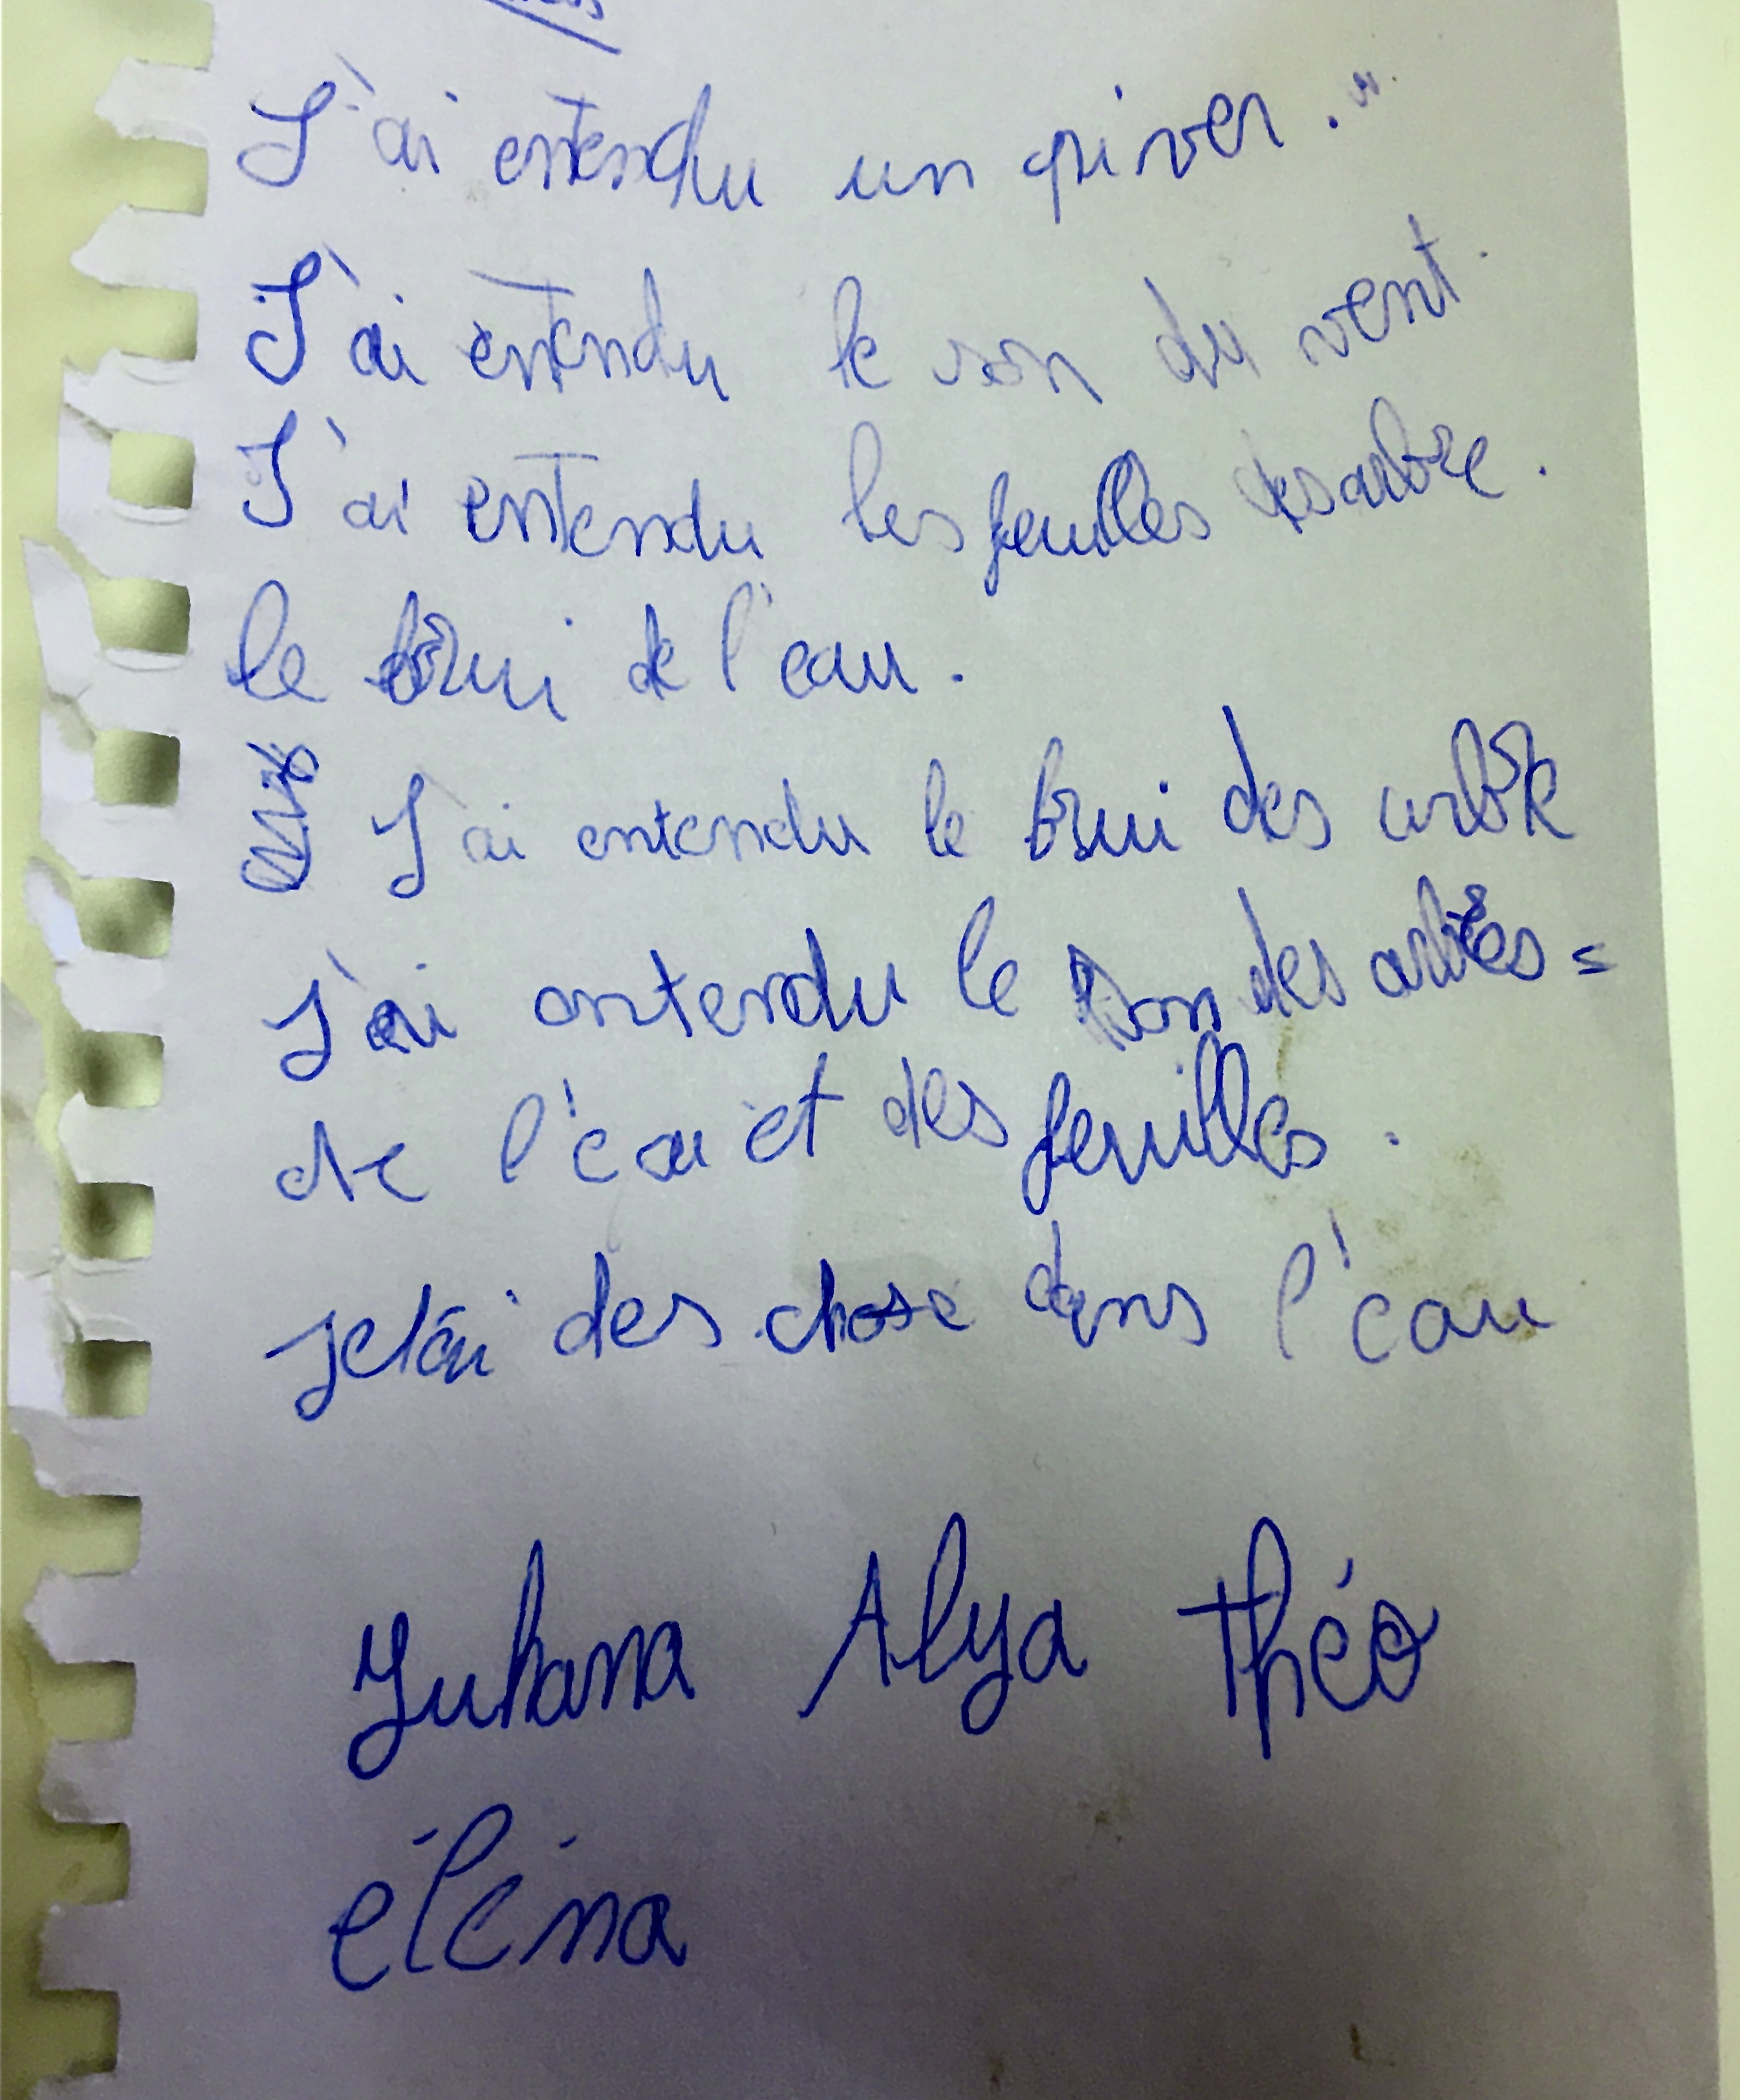 J'ai entendu un piver.
J'ai entendu le son du vent.
J'ai entendu les feuilles des arbre.
le brui de l'eau.
J'ai entendu le brui des arbre
J'ai entendu le son des arbres =
de l'eau et des feuilles.
jetai des chose dans l'eau
Juliana Alya Théo
éléna